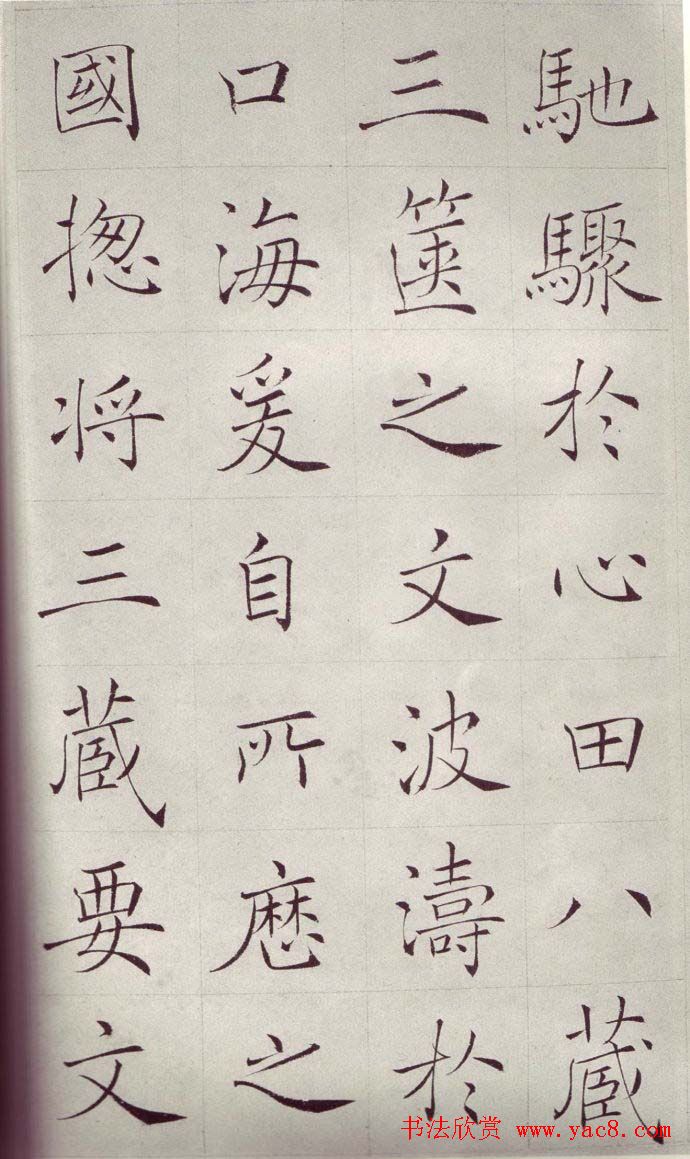 馳驟於心田八蔵
三篋之文波濤於
口海爰自所歴之
國揔将三蔵要文
书法欣赏 www.yac8.com